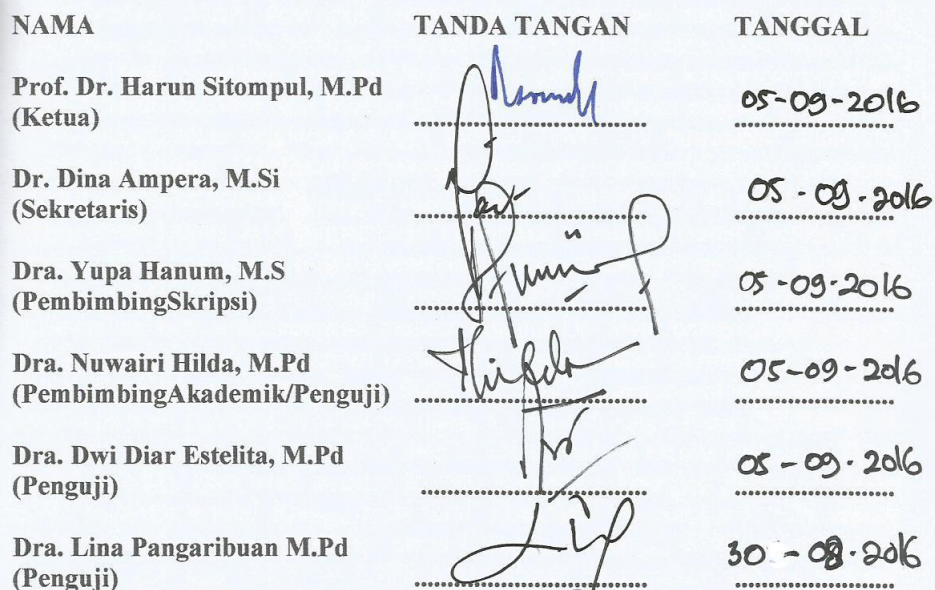 NAMA TANDA TANGAN TANGGAL
Prof. Dr. Harun Sitompul, M.Pd
(Ketua) 05-09-2016
Dr. Dina Ampera, M.Si
(Sekretaris) 05-09-2016
Dra. Yupa Hanum, M.S
(PembimbingSkripsi) 05-09-2016
Dra. Nuwairi Hilda, M.Pd
(PembimbingAkademik/Penguji) 05-09-2016
Dra. Dwi Diar Estelita, M.Pd
(Penguji) 05-09-2016
Dra. Lina Pangaribuan M.Pd
(Penguji) 30-08-2016